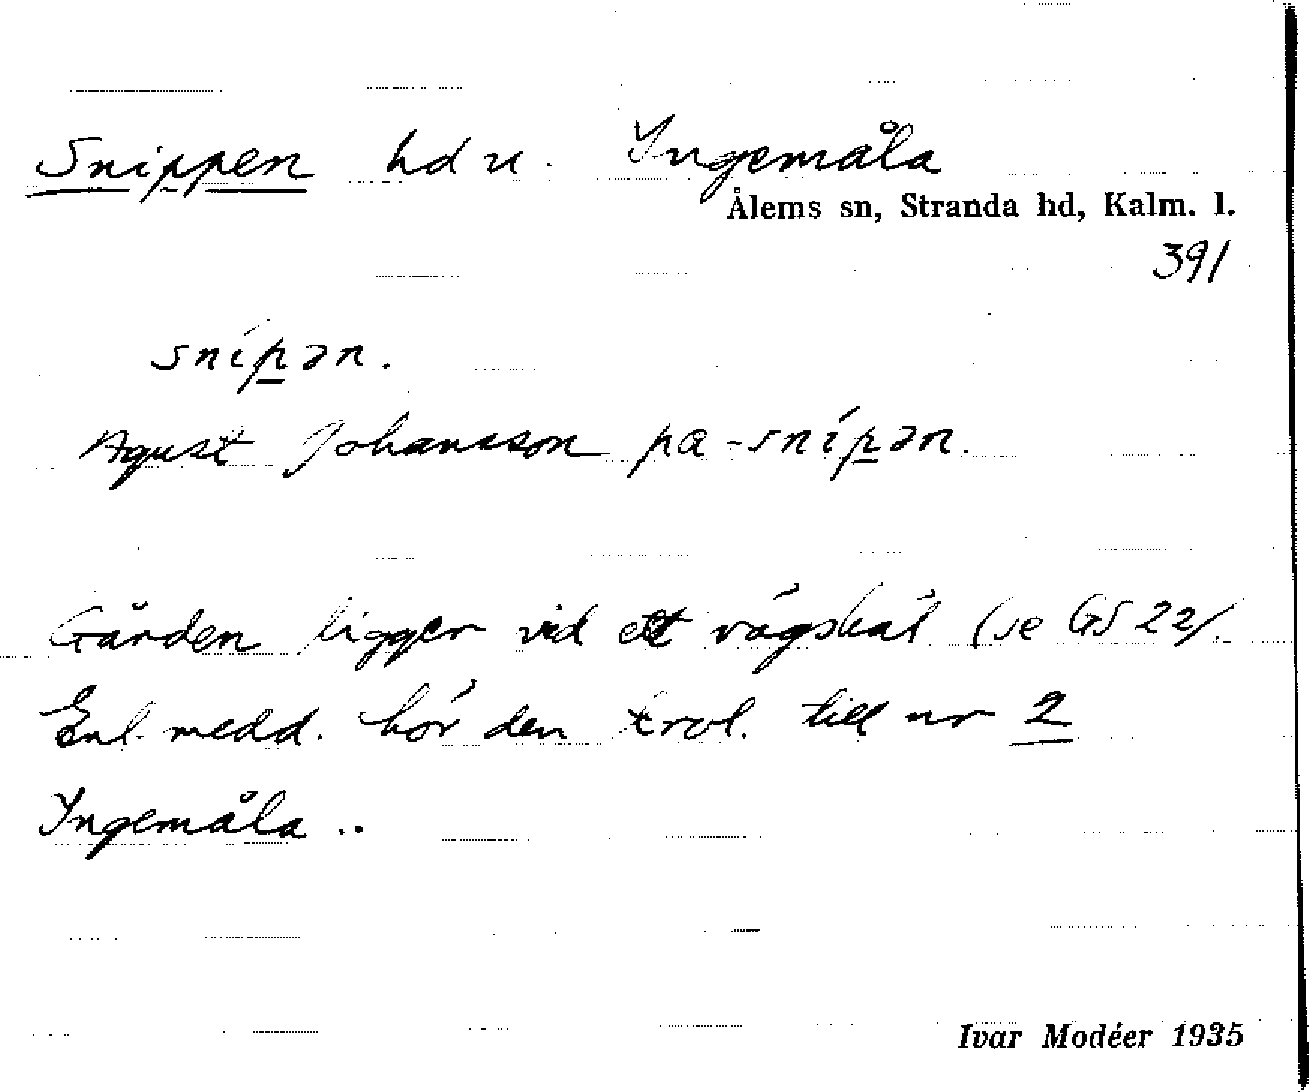 Snippen hd u. Yngemåla
Ålems sn, Stranda hd, Kalm. l.
391
snípən.
Agust Johansson pa-snípən.
Gården ligger vid ett vägskäl (se GS 22).
Enl. medd. hör den trol. till nr 2
Yngemåla ..
Ivar Modéer 1935